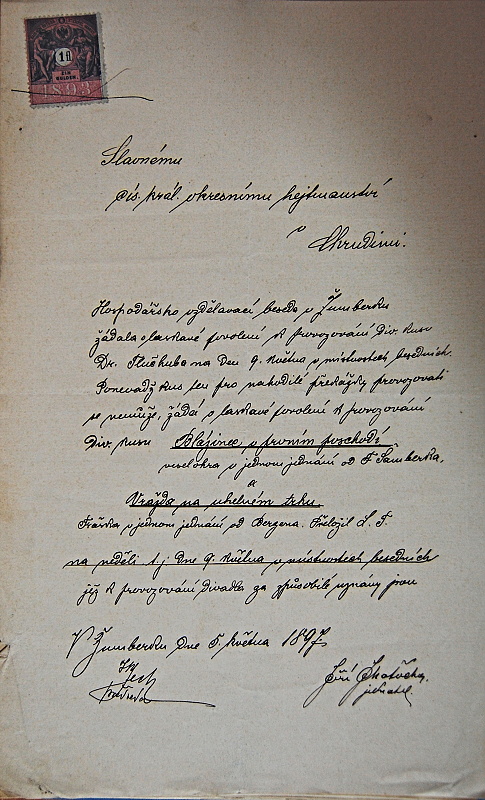 1 fl
EIN GULDEN.
1893
Slavnému
cís. král. okresnímu hejtmanství
v Chrudimi.
Hospodářsko vzdělavací beseda v Žumberku
žádala o laskavé povolení k provozování div. kusu
Dr. na den 9. května v místnostech besedních.
Poněvadž kus ten pro nahodilé překážky provozovati
se nemůže, žádá o laskavé povolení k provozování
div. kusu Blázinec v prvním poschodí
veselohra v jednom jednání od F. Šamberka,
a
Vražda na uhelném trhu.
Fraška v jednom jednání od Bergena. Přeložil L. F.
na neděli t. j. dne 9. května v místnostech besedních
jež k provozování divadla za způsobilé uznány jsou
V Žumberku dne 5. května 1897
Jiří
jednatel.